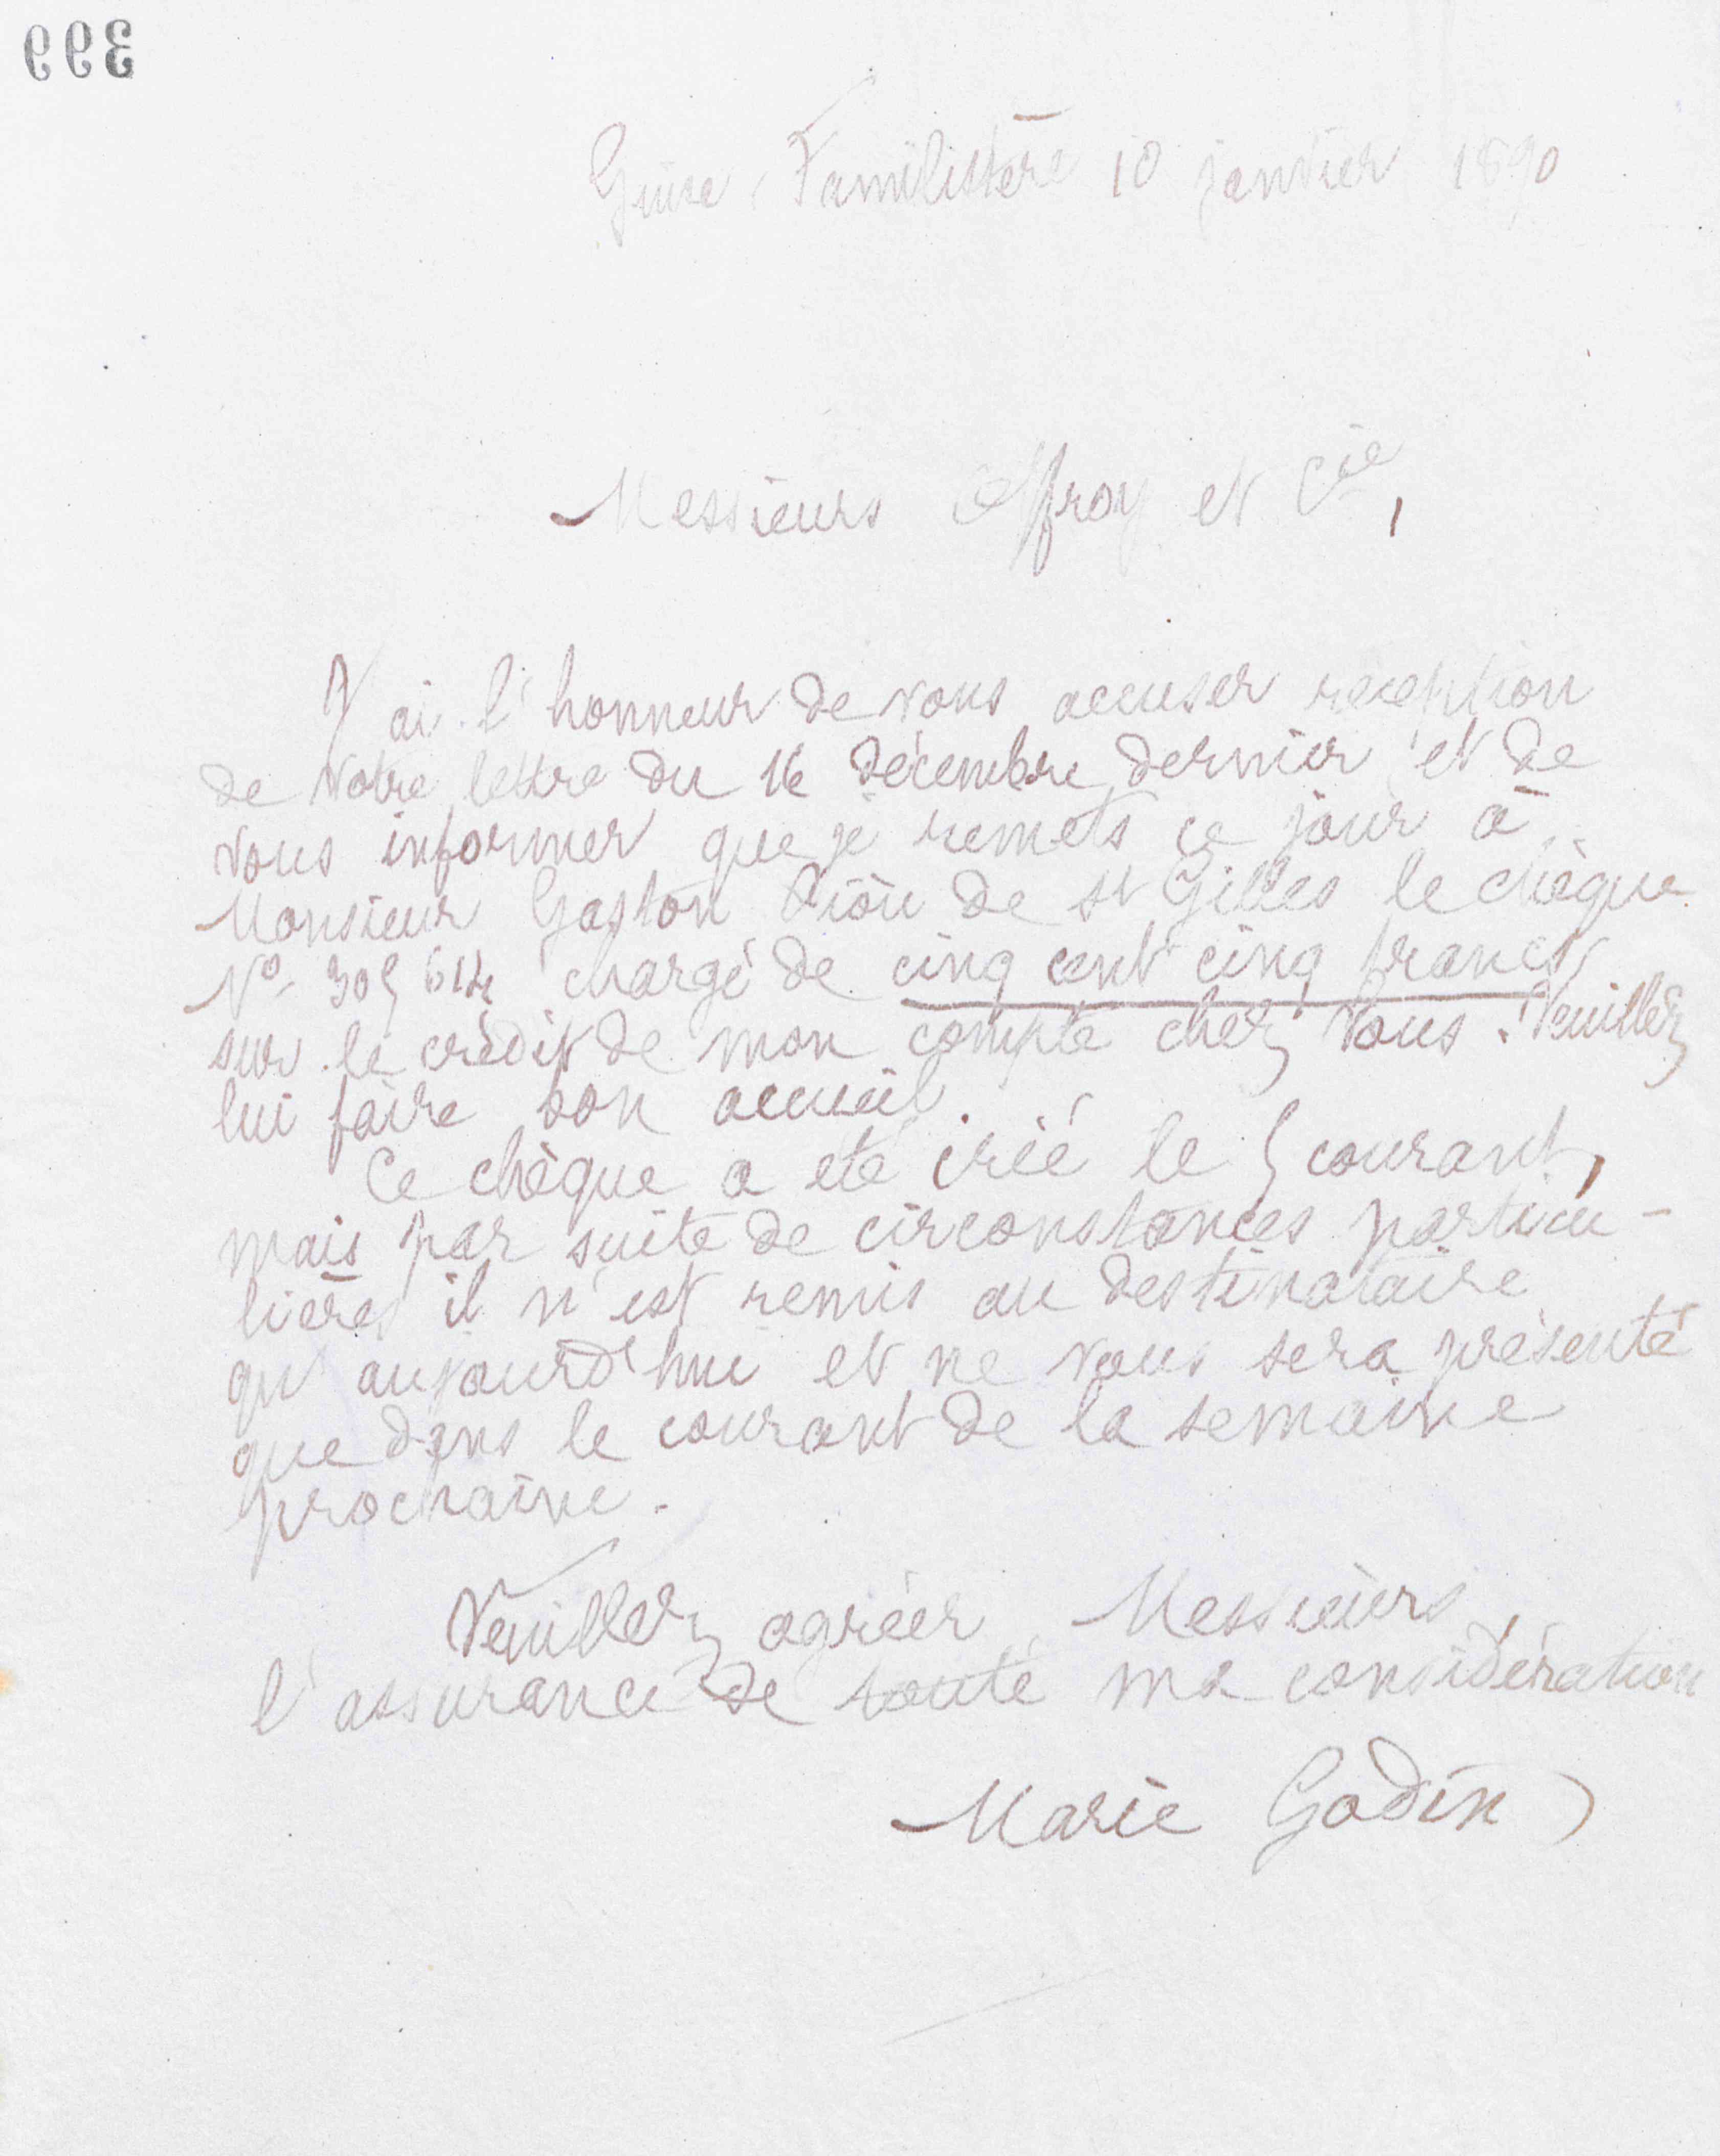 399
Guise, Familistère 10 janvier 1890
Messieurs Offroy et Cie,
J'ai l'honneur de vous accuser réception
de votre lettre du 16 décembre dernier et de
vous informer que je remets ce jour à
Monsieur Gaston Piou de St Gilles le chèque
No chargé de cinq cent cinq francs
sur le crédit de mon compte chez vous. Veuillez
lui faire bon accueil.
Ce chèque a été créé le 5 courant,
mais par suite de circonstances particu-
lières il n'est remis au destinataire
qu'aujourd'hui et ne vous sera présenté
que dans le courant de la semaine
prochaine.
Veuillez agréer Messieurs,
l'assurance de toute ma considération
Marie Godin